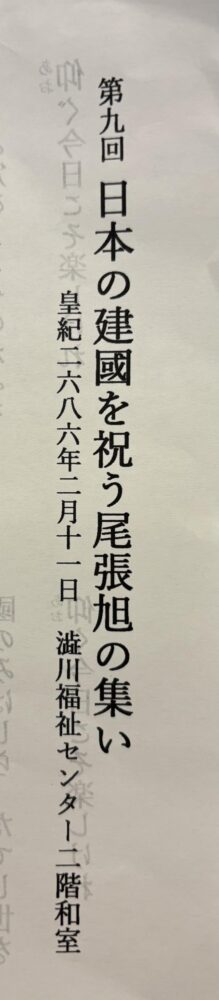 第九回 日本の建國を祝う尾張旭の集い
皇紀二六八六年二月十一日 澁川福祉センター二階和室